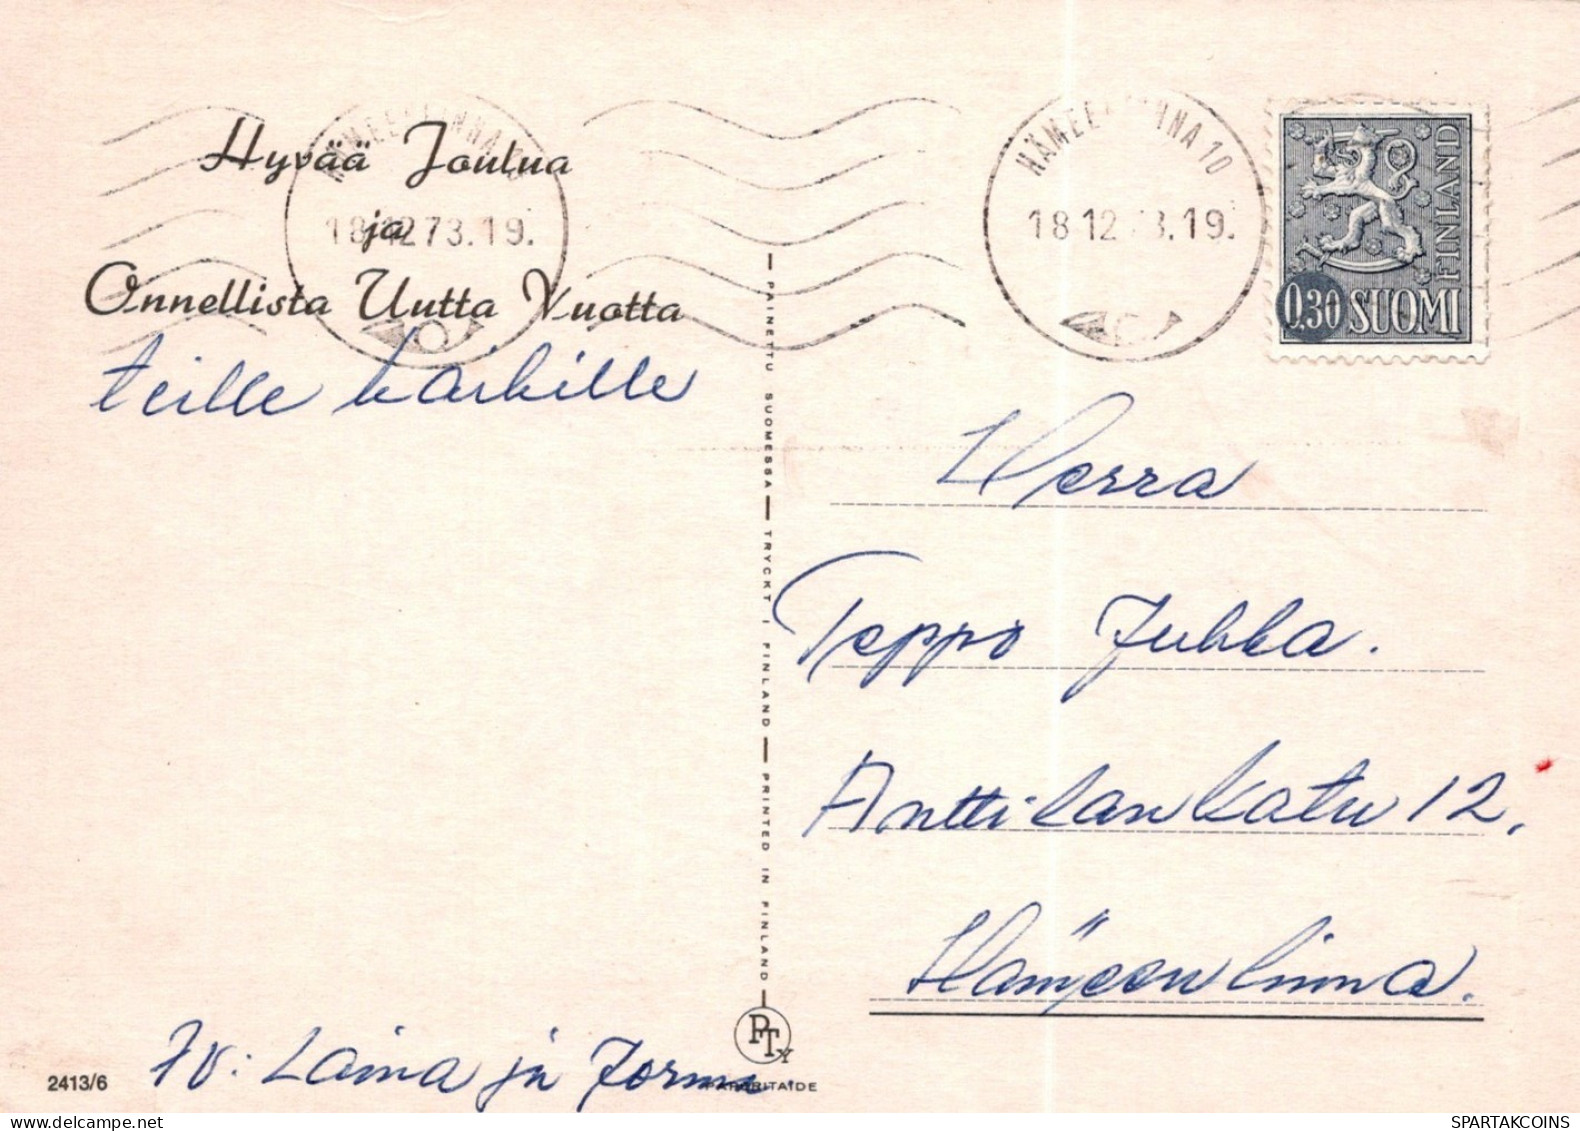 HÄMEENLINNA 10
18.12.73.19.
HÄMEENLINNA 10
18.12.73.19.
FINLAND
0,30 SUOMI
Hyvää Joulua
ja
Onnellista Uutta Vuotta
teille kaikille
Herra
Teppo Jukka.
Anttilankatu 12.
Hämeenlinna.
PAINETTU SUOMESSA — TRYCKT I FINLAND — PRINTED IN FINLAND
PTY
PAPERITAIDE
2413/6
Tv: Laina ja Jorma
delcampe.net
SPARTAKCOINS